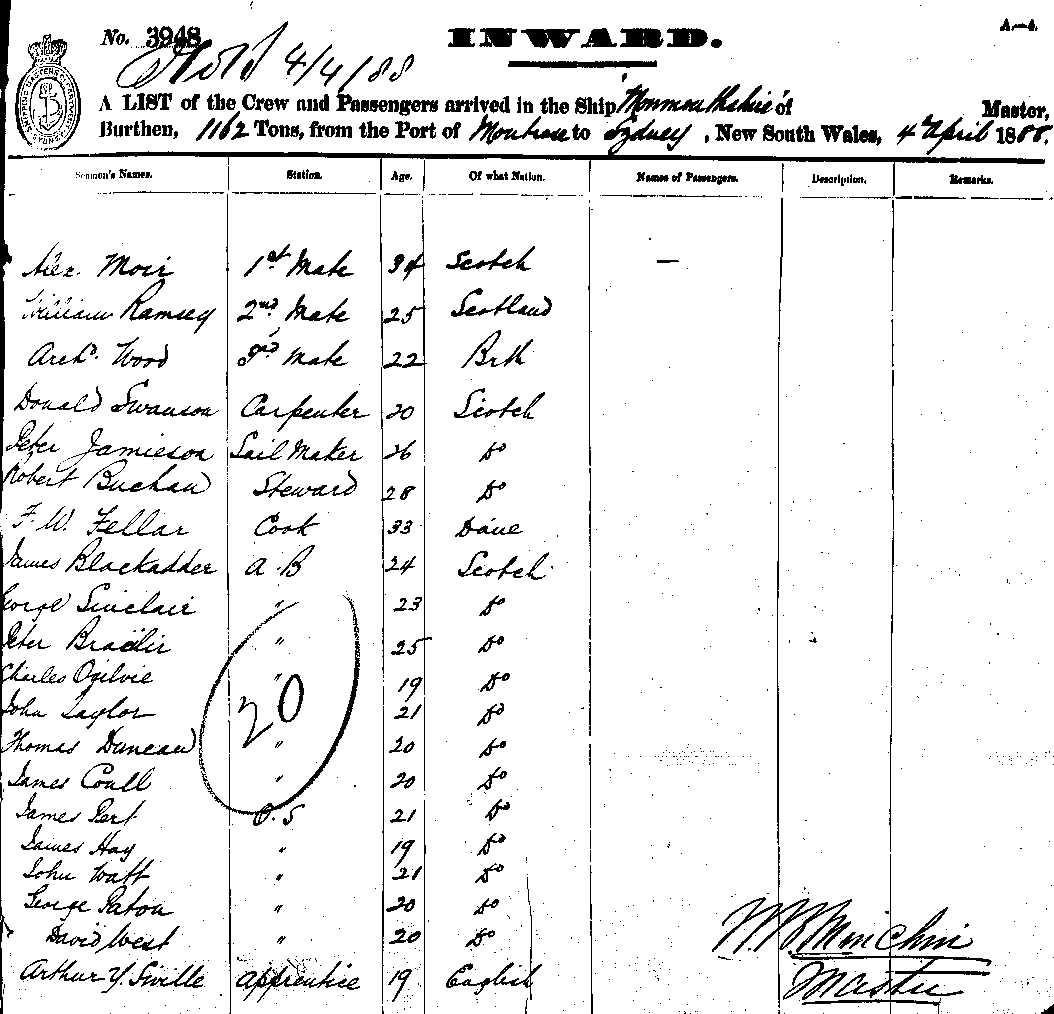 No. 3948 INWARD. A—4.
4/4/88
A LIST of the Crew and Passengers arrived in the Ship "Monmouthshire" of Master,
Burthen, 1162 Tons, from the Port of Montrose to Sydney, New South Wales, 4th April 1888.
Seamen's Names. Station. Age. Of what Nation. Names of Passengers. Description. Remarks.
Alex. Moir 1st Mate 34 Scotch —
William Ramsey 2nd Mate 25 Scotland
Archd. Wood 3rd Mate 22 Brth
Donald Swanson Carpenter 20 Scotch
Peter Jamieson Sail Maker 26 Do
Robert Buchan Steward 28 Do
F. W. Fellar Cook 33 Dane
James Blackadder A.B 24 Scotch
George Sinclair " 23 Do
Peter " 25 Do
Charles Ogilvie " 19 Do
John Taylor 20 21 Do
Thomas Duncan " 20 Do
James Coull " 20 Do
James Pert O.S 21 Do
James Hay " 19 Do
John Watt " 21 Do
George Paton " 20 Do
David West " 20 Do
Arthur Y. Siville Apprentice 19 English
W. B. Minchin
Master